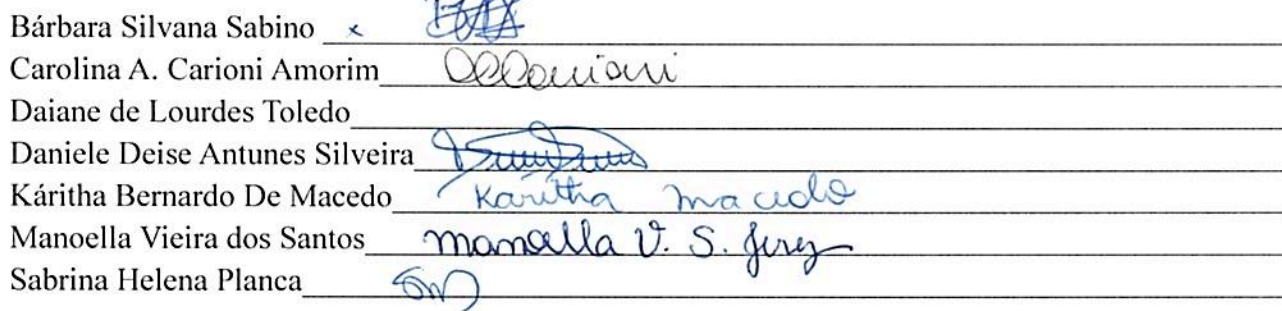 Bárbara Silvana Sabino x
Carolina A. Carioni Amorim
Daiane de Lourdes Toledo
Daniele Deise Antunes Silveira
Káritha Bernardo De Macedo Karitha Macedo
Manoella Vieira dos Santos Manoella V. S.
Sabrina Helena Planca